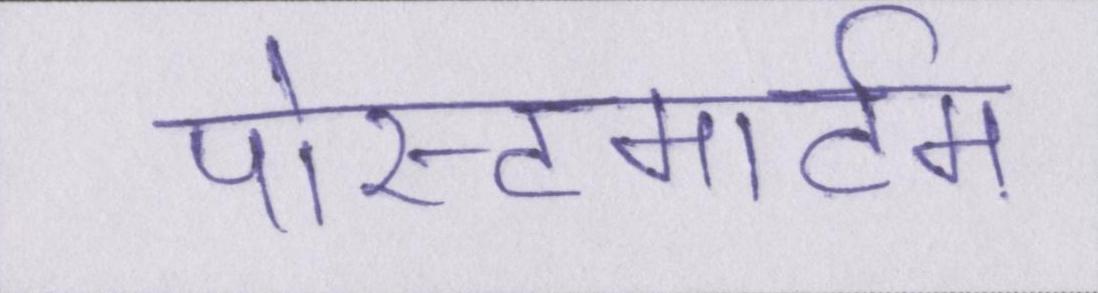 पोस्टमार्टम